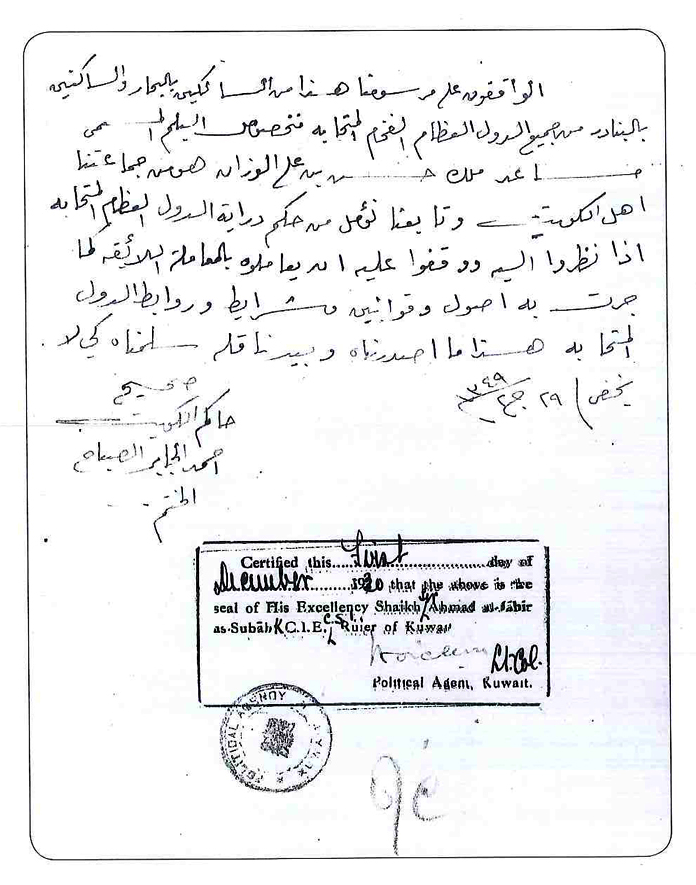 الواقفون على مرسومنا هذا من السالكين بالبحار والساكنين
بالبنادر من جميع الدول العظام الفخام المتحابه فخصوص البلم المسمى
ملك حسين بن علي الوزان هو من جماعتنا
اهل الكويت وتابعنا نؤمل من حكم دراية الدول العظام المتحابه
اذا نظروا اليه ووقفوا عليه ان يعاملوه بالمعاملة اللائقه كما
جرت به اصول وقوانين وشرايط وروابط الدول
المتحابه هذا ما اصدرناه وبيده سلمناه كي لا
يخفى ٢٩ ج٢ ١٣٤٩
صحيح
حاكم الكويت
احمد الجابر الصباح
Certified this First day of
December 1930 that the above is the
seal of His Excellency Shaikh Sir Ahmad al-Jabir
as-Subah K.C.I.E. C.S.I. Ruler of Kuwait
Lt. Col.
Political Agent, Kuwait.
POLITICAL AGENCY